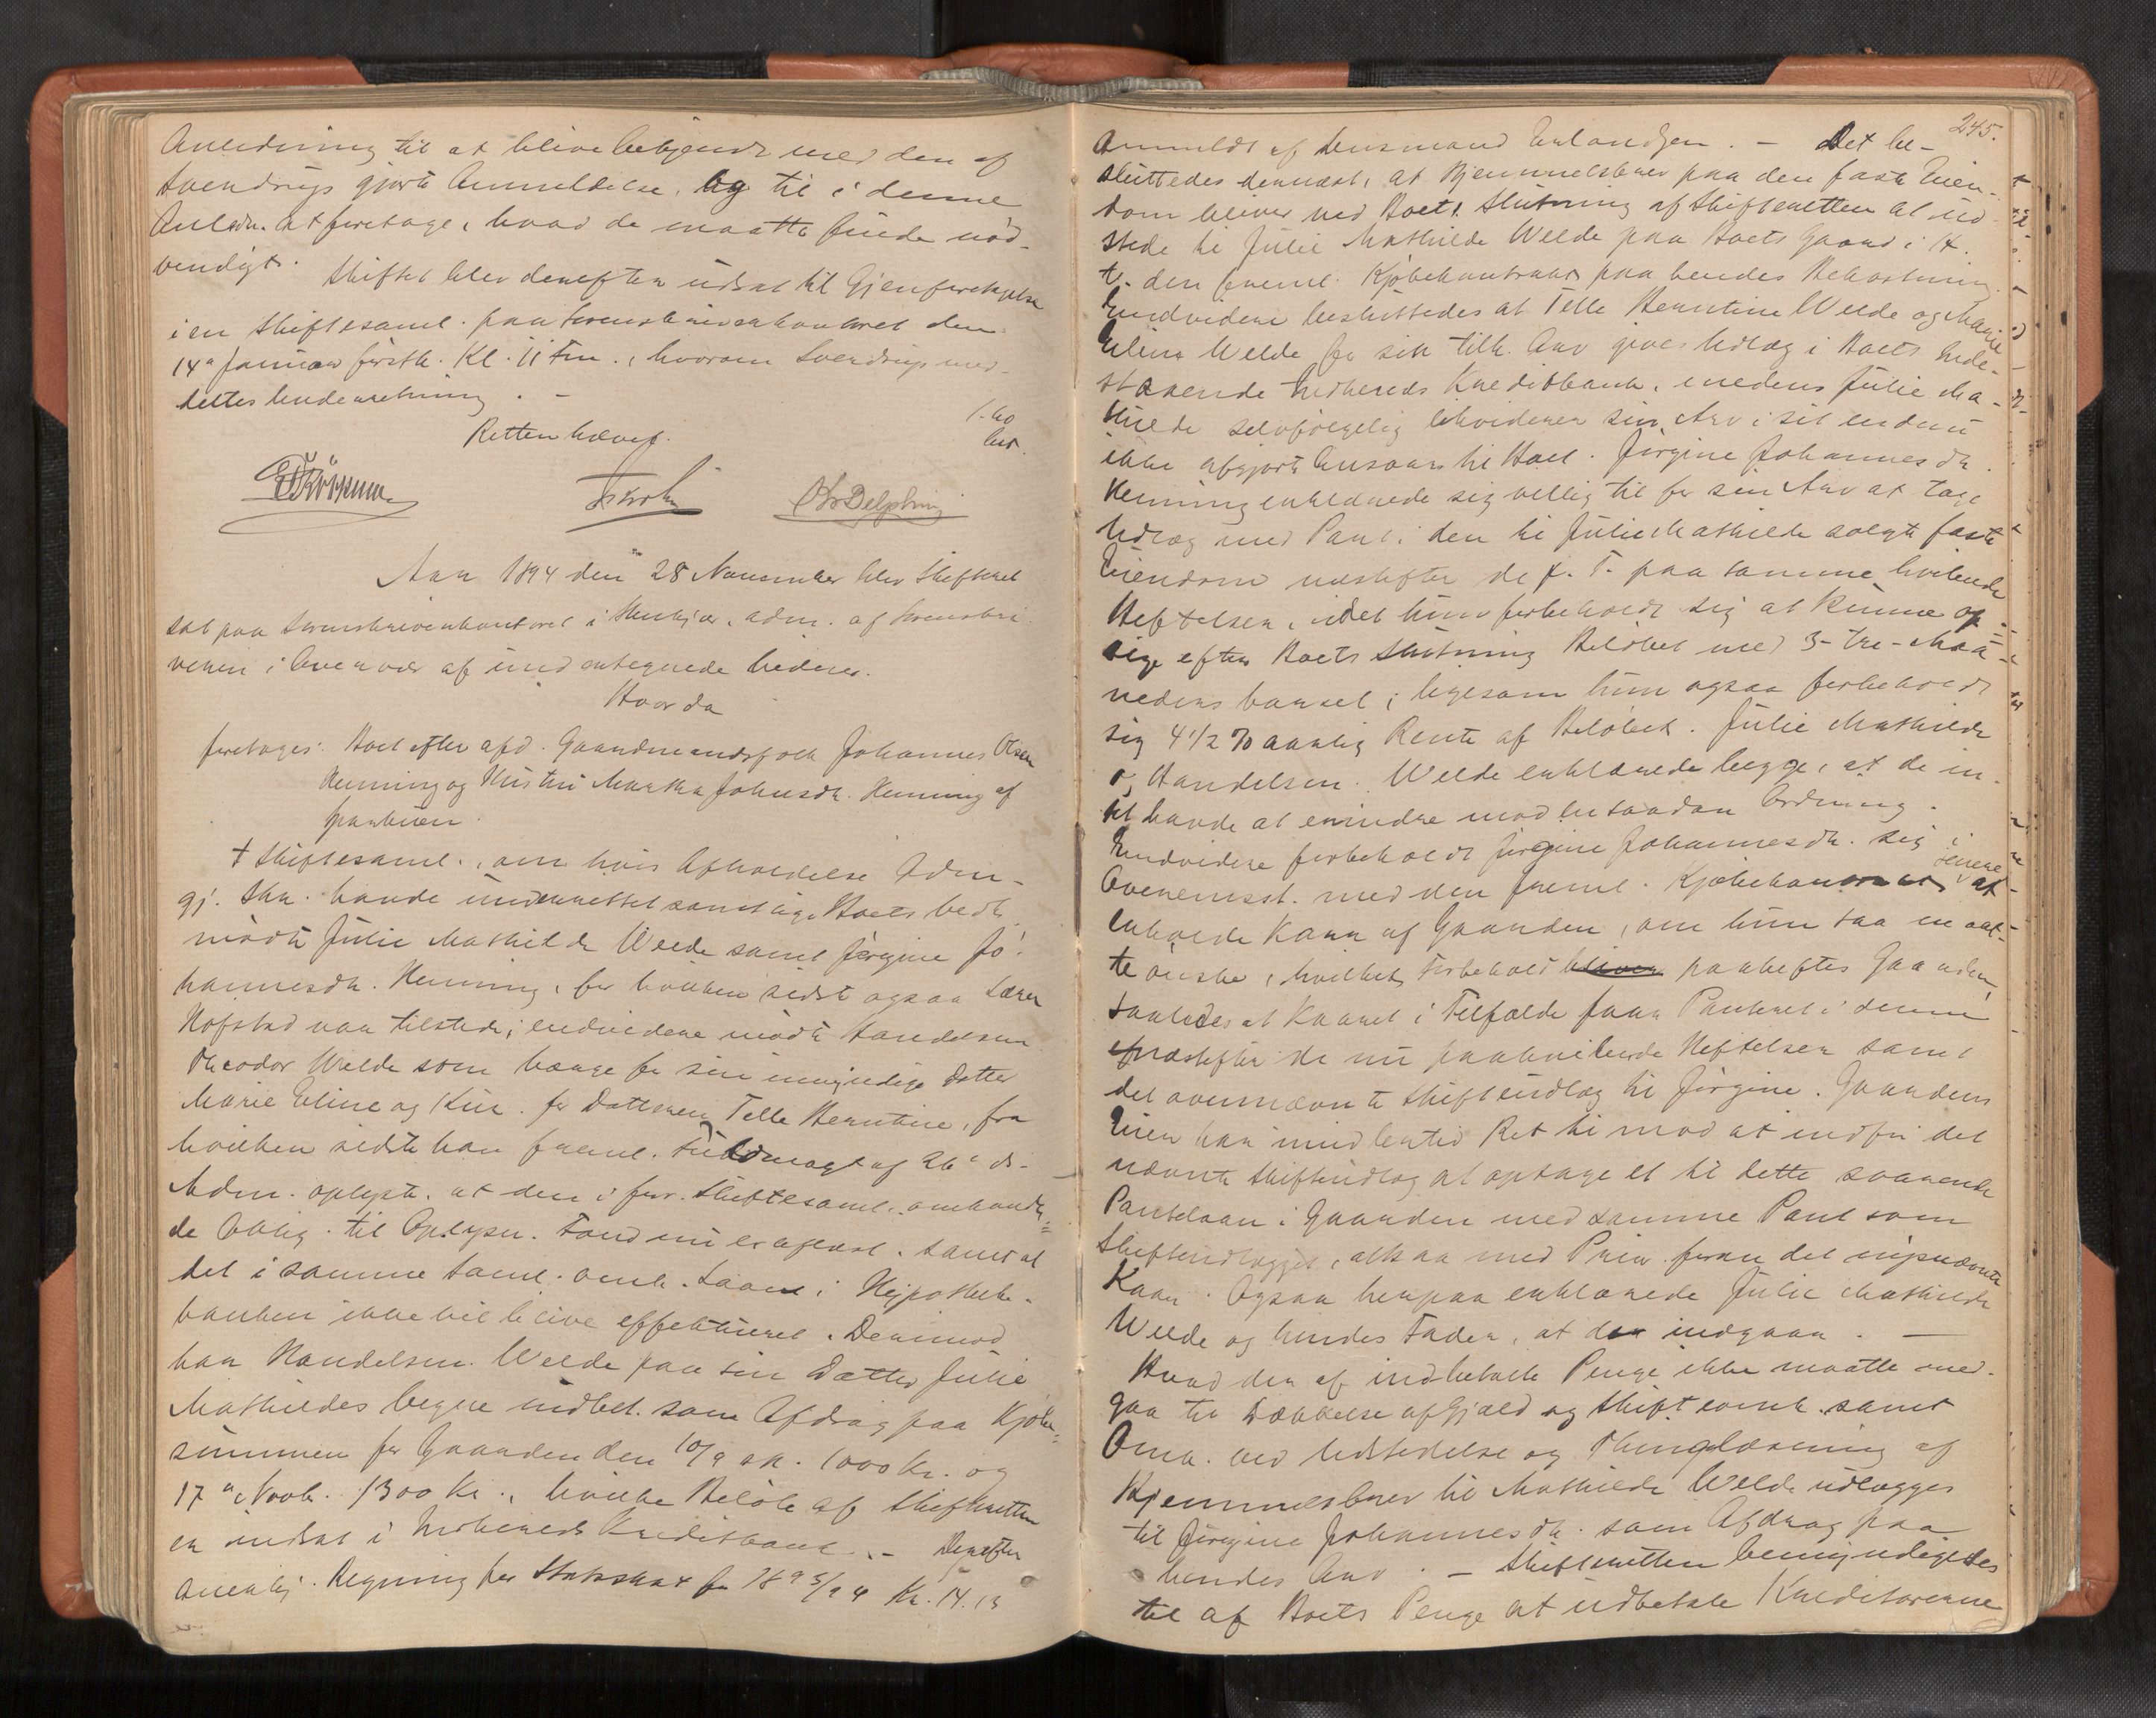 Anledning til at blive bekjendt med den af
Svendrups gjorte Anmeldelse, og til i denne
Anledn. at foretage, hvad de maatte finde nød-
vendigt.
Skiftet blev derefter udsat til Gjenforetagelse
i en Skiftesaml. paa Sorenskriverkontoret den
14de Januar førstk. Kl. 11 Fm., hvorom Svendrups med-
deltes Underretning. –
Retten hævet.
1-60
Aar 1894 den 28 November blev Skifteret
sat paa Sorenskriverkontoret i Stenkjær, adm. af Sorenskri
veren i Overvær af undertegnede Vidner.
Hvorda
foretoges: Boet efter afd. Gaardmandsfolk Johannes Olsen
Henning og Hustru Martha Johnsdtr. Henning af
Sparbuen.
I Skiftesaml., om hvis Afholdelse Adm.
gj. Skr. havde underrettet samtlige Boets Vedk.
mødte Julie Mathilde Welde samt Jørgine Jo-
hannesdtr. Henning, for hvilken sidste ogsaa Lærer
Hofstad var tilstede; endvidere mødte Handelsm.
Theodor Welde som Værge for sin umyndige Datter
Marie Eline og Kur. for Datteren Telle Berntine, fra
hvilken sidste han freml. Fuldmagt af 26de ds. –
Adm. oplyste, at den i forr. Skiftesaml. omhandle-
de Oblig. til Oplysn. Fond nu er aflæst, samt at
det i samme Saml. omh. Laan i Hypothek-
banken ikke vil blive effektueret. Derimod
har Handelsm. Welde paa sin Datter Julie
Mathildes Vegne indbet. som Afdrag paa Kjøbe-
summen for Gaarden den 10/9 sk. 1000 Kr. og
17de Novb. 1300 Kr., hvilke Beløb af Skifteretten
er indsat i Indherreds Kreditbank. – Derefter
Regning for Statsskat for 1893/94 Kr. 14.13
245.
anmeldt af Lensmand Erlandsen. – Det be-
sluttedes dernæst, at Hjemmelsbrev paa den faste Eien-
dom bliver ved Boets Slutning af Skifteretten at ud-
stede til Julie Mathilde Welde paa Boets Gaard i H.
t. den freml. Kjøbekontrakt paa hendes Bekostning.
Endvidere besluttedes at Telle Berntine Welde og Marie
Eline Welde for sin tilk. Arv gives Udlæg i Boets Inde-
staaende i Indherreds Kreditbank, medens Julie Ma-
thilde selvfølgelig likviderer sin Arv i sit endnu
ikke afgjorte Ansvar til Boet. Jørgine Johannesdtr.
Henning erklærede sig villig til for sin Arv at tage
Udlæg med Pant i den til Julie Mathilde solgte faste
Eiendom næstefter de f. T. paa samme hvilende
Heftelser, idet hun forbeholdt sig at kunne op-
sige efter Boets Slutning Beløbet med 3-tre-Maa-
neders Varsel; ligesom hun ogsaa forbeholdt
sig 4 1/2 % aarlig Rente af Beløbet. Julie Mathilde
og Handelsm. Welde erklærede begge, at de in-
tet havde at erindre mod en saadan Ordning.
Endvidere forbeholdt Jørgine Johannesdtr. sig i
Overensst. med den freml. Kjøbekontrakt senere at
erholde Kaar af Gaarden, om hun saa maat-
te ønske, hvilket Forbehold bliver paaheftes Gaarden,
saaledes at Kaaret i Tilfælde faar Panteret i denne
næstefter de nu paahvilende Heftelser samt
det ovennævnte Skifteudlæg til Jørgine. Gaardens
Eier har imidlertid Ret til mod at indfri det
nævnte Skifteudlæg at optage et til dette svarende
Pantelaan i Gaarden med samme Pant som
Skifteudlægget, altsaa med Prior. foran det nysnævnte
Kaar. Ogsaa herpaa erklærede Julie Mathilde
Welde og hendes Fader, at de indgaar. –
Hvad der af indbetalte Penge ikke maatte med-
gaa til Dækkelse af Gjæld og Skifteomk. samt
Omk. ved Udstedelse og Thinglæsning af
Hjemmelsbrev til Mathilde Welde udlægges
til Jørgine Johannesdtr. som Afdrag paa
hendes Arv. – Skifteretten bemyndigedes
til af Boets Penge at udbetale Kreditorerne